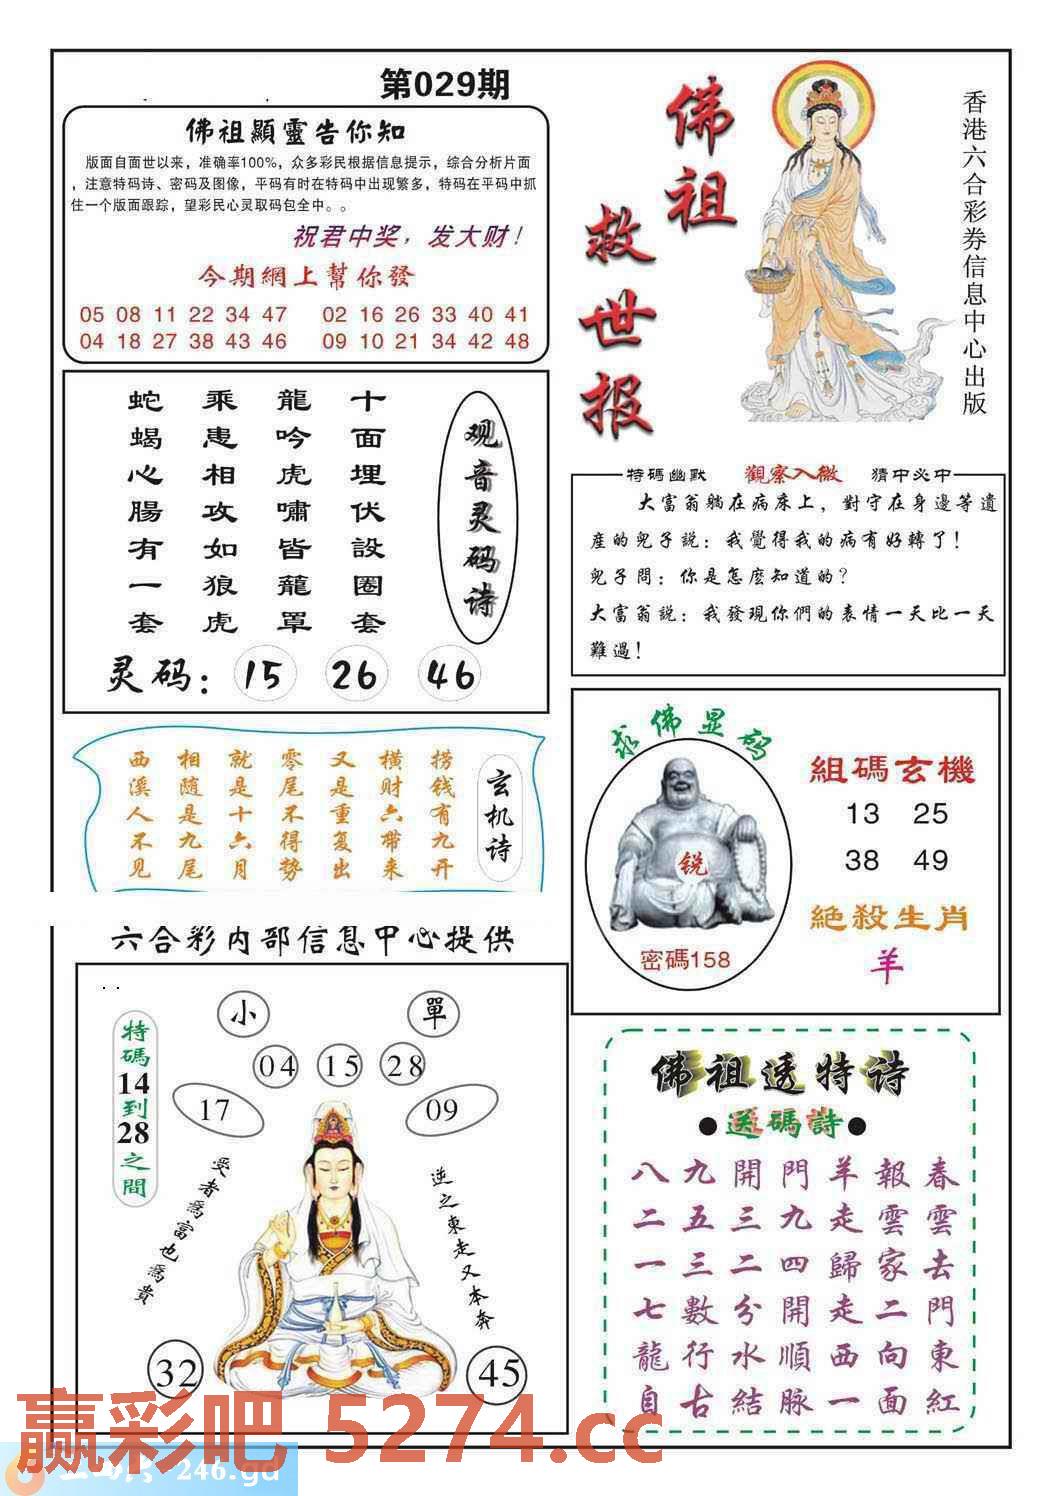 第029期
佛祖顯靈告你知
版面自面世以来，准确率100%，众多彩民根据信息提示，综合分析片面
，注意特码诗、密码及图像，平码有时在特码中出现繁多，特码在平码中抓
住一个版面跟踪，望彩民心灵取码包全中。。
祝君中奖，发大财！
今期網上幫你發
05 08 11 22 34 47 02 16 26 33 40 41
04 18 27 38 43 46 09 10 21 34 42 48
佛祖
救世报
香港六合彩券信息中心出版
观音灵码诗
十面埋伏設圈套
龍吟虎嘯皆龍罩
乘患相攻如狼虎
蛇蝎心腸有一套
灵码：15 26 46
特碼幽默 觀察入微 猜中必中
大富翁躺在病床上，對守在身邊等遺
産的兒子說：我覺得我的病有好轉了！
兒子問：你是怎麽知道的？
大富翁説：我發現你們的表情一天比一天
難過！
玄机诗
捞钱有九开
横财六带来
又是重复出
零尾不得势
就是十六月
相随是九尾
西溪人不见
求佛显码
锐
密碼158
組碼玄機
13 25
38 49
絶殺生肖
羊
六合彩内部信息中心提供
特碼14到28之間
小 單
04 15 28
17 09
受者爲富也爲貴
逆之東走又本奔
32 45
佛祖透特诗
●送碼詩●
八九開門羊報春
二五三九走雲雲
一三二四歸家去
七數分開走二門
龍行水順西向東
自古結脉一面紅
赢彩吧 5274.cc
246.gd